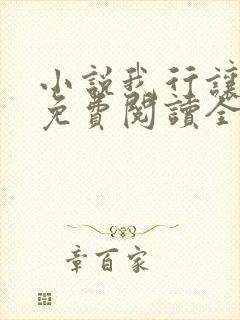 小説我行讓
免費閱讀全
章百家